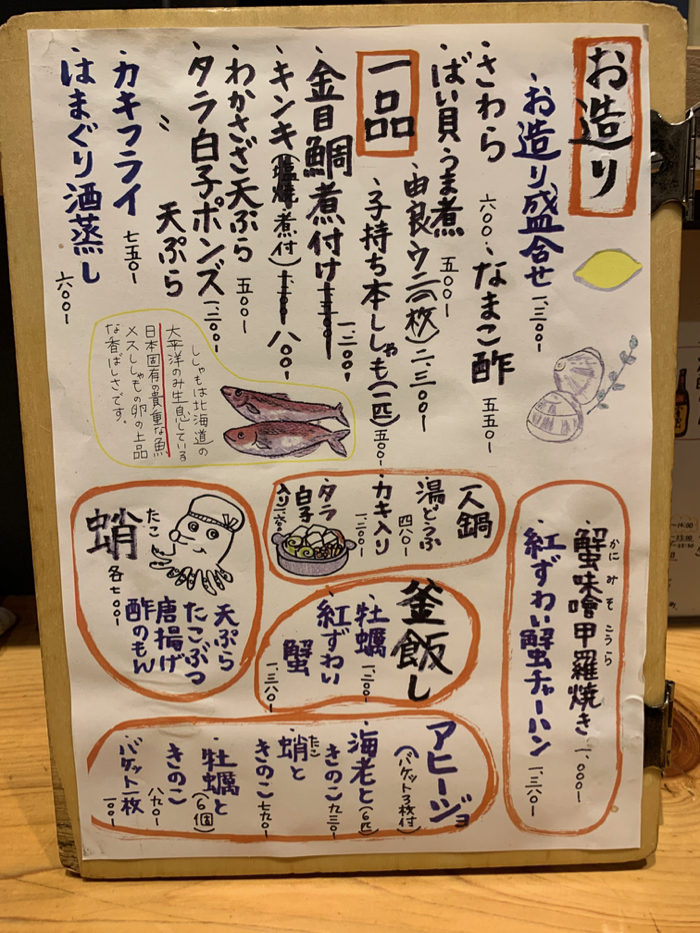 お造り
・お造り盛合せ 一、三〇〇ー
・さわら 六〇〇
・なまこ酢 五五〇ー
・ばい貝うま煮 五〇〇ー
・由良ウニ(一枚) 二、三〇〇ー
一品
・子持ち本ししゃも(一匹) 五〇〇ー
・金目鯛煮付け 一、二〇〇ー
・キンキ(塩焼 煮付) 八〇〇ー
・わかさぎ天ぷら 五〇〇ー
・タラ白子ポンズ 一、二〇〇ー
〃 天ぷら
・カキフライ 七五〇ー
・はまぐり酒蒸し 六〇〇ー
ししゃもは北海道の
太平洋のみ生息している
日本固有の貴重な魚
メスししゃもの卵の上品
な香ばしさです。
蟹味噌甲羅焼き 一、〇〇〇ー
かに みそ こうら
・紅ずわい蟹チャーハン 一、三八〇ー
一人鍋
・湯どうふ 四八〇ー
・カキ入り 一、二〇〇ー
・タラ白子入り
釜飯し
・牡蠣 一、二〇〇ー
・紅ずわい
蟹 一、三八〇ー
蛸
たこ
各七〇〇ー
天ぷら
たこぶつ
唐揚げ
酢のもん
アヒージョ
(バゲット3枚付)
・海老と(6匹)
きのこ 九三〇ー
・蛸と
たこ
きのこ 七九〇ー
・牡蠣と(6個)
きのこ 八九〇ー
・バゲット一枚 一〇〇ー